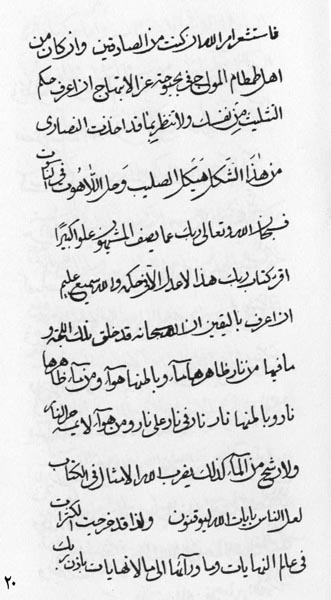 فاستشعر امر الله ان كنت من الصادقين وان كان من
اهل طمطام المواج في بحبوحة عز الابتهاج ان اعرف حكم
التثليث من نفسك ولا تنظر بما قد اخذت النصارى
من هذا الشكل هيكل الصليب وحل اللاهوت في الناسوت
فسبحان الله وتعالى ربك عما يصف المشبهون علوا كبيرا
اقرء كتاب ربك هذا لا عدل الا في حكمه والله سميع عليم
ان اعرف باليقين ان الله سبحانه قد خلق تلك اللجة و
ما فيها من نار ظاهرها ماء وباطنها هواء ومن ماء ظاهرها
نار وباطنها نار نار في نار على نار ومن هواء لا يمسه حر النار
ولا رشح من الماء كذلك يضرب الله الامثال في الكتاب
لعل الناس بايات الله ليوقنون ولقد خرجت الكثرات
في عالم النهايات وما وراءها الى ما لا نهايات باذن ربك
٢٠